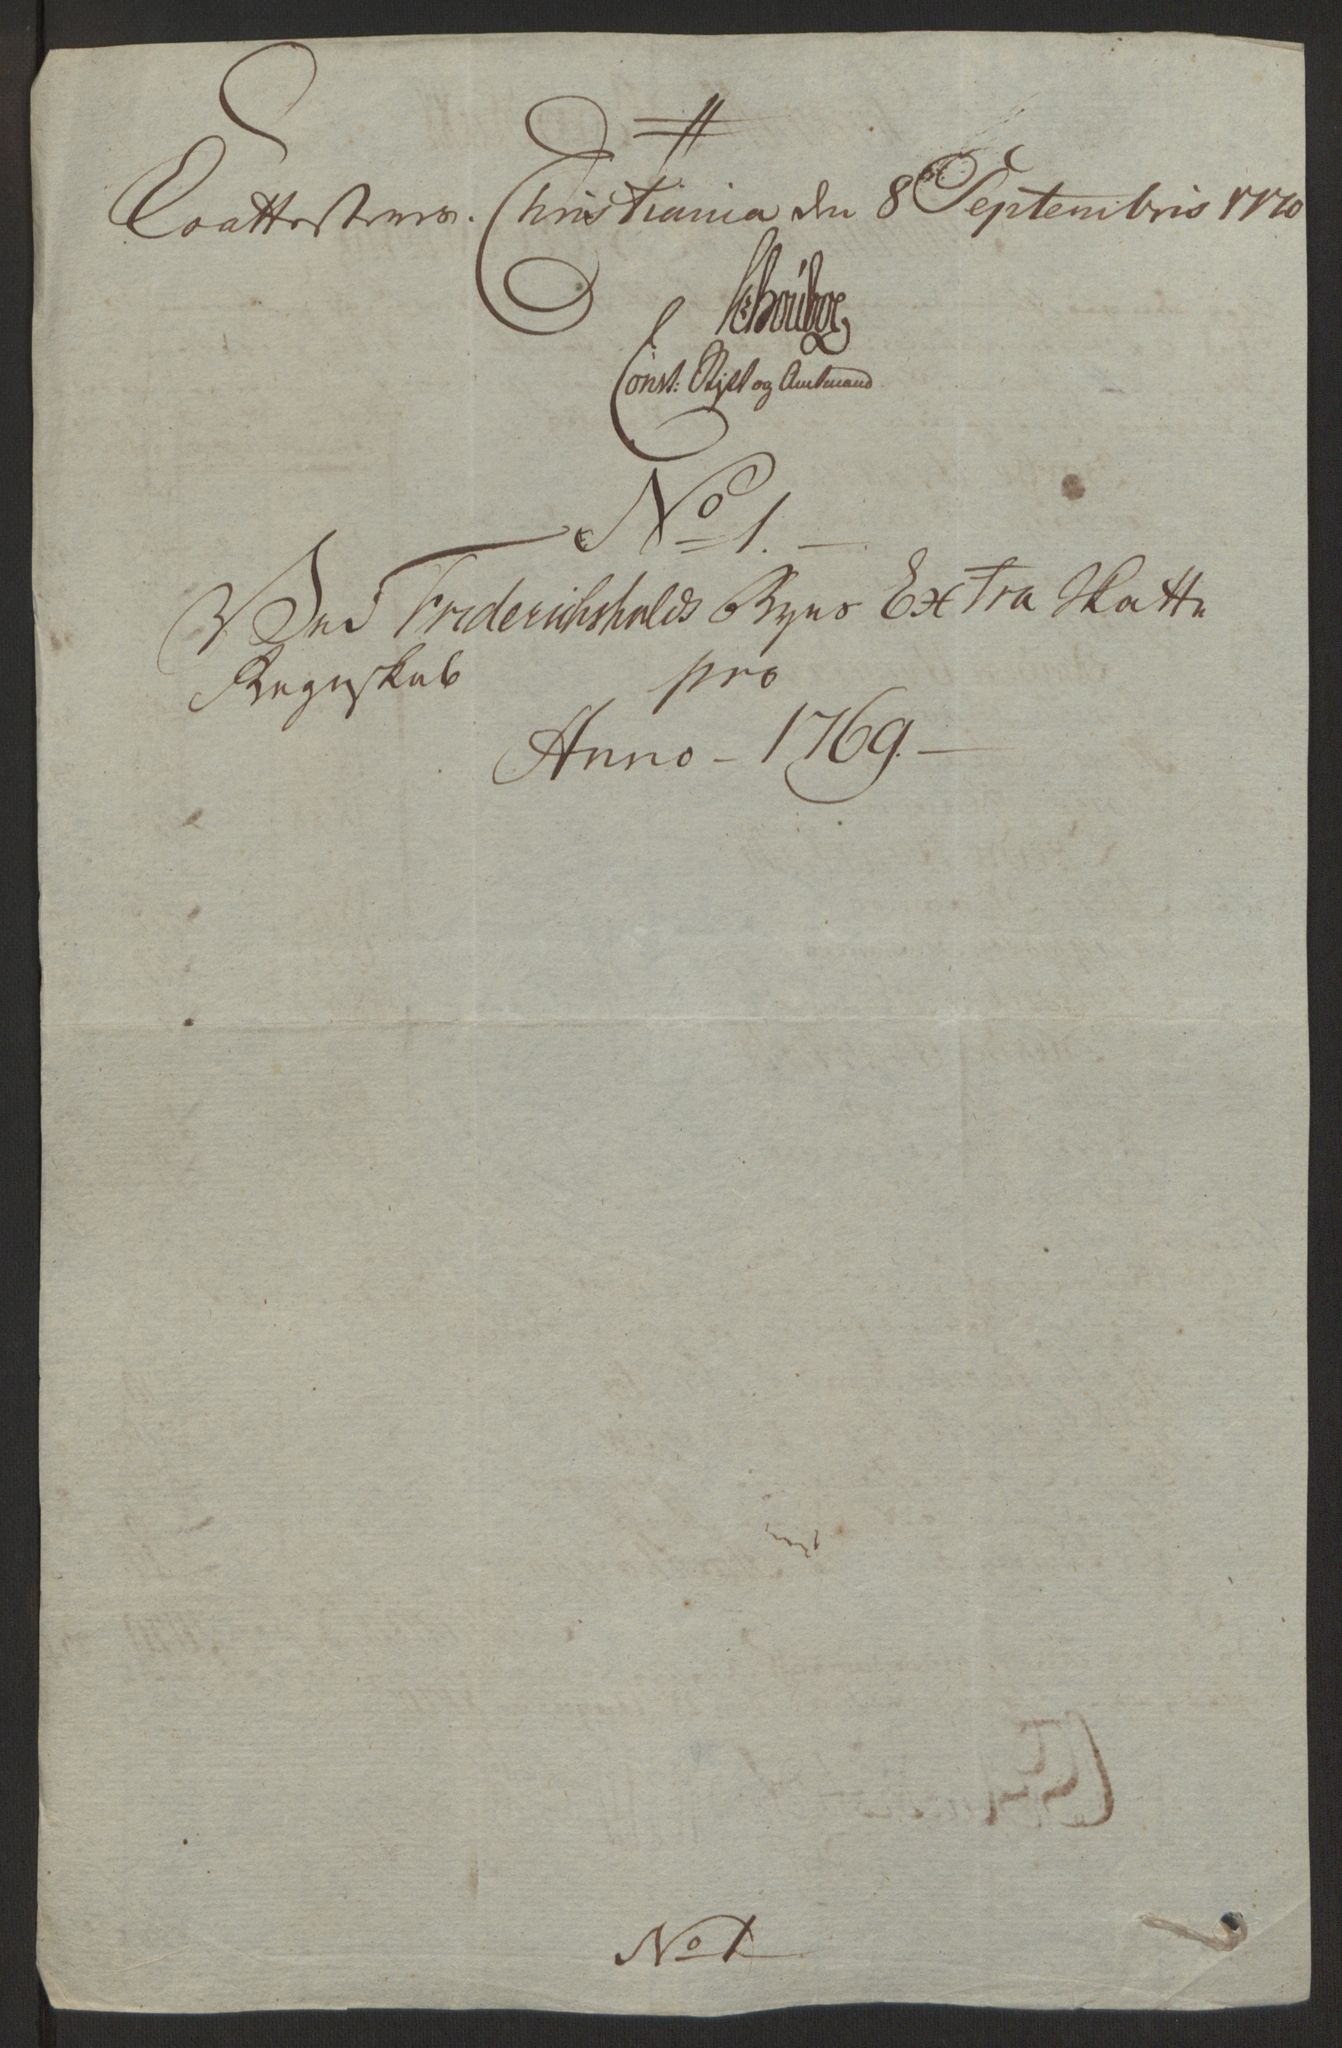 Coatterteres. Christiania den 8de Septembris 1770
Schouboe
Const: Stift og Amtmand
No 1.
Ved Friderichshalds Byes Extra Skatte
Regnskab pro
Anno - 1769.
No 1